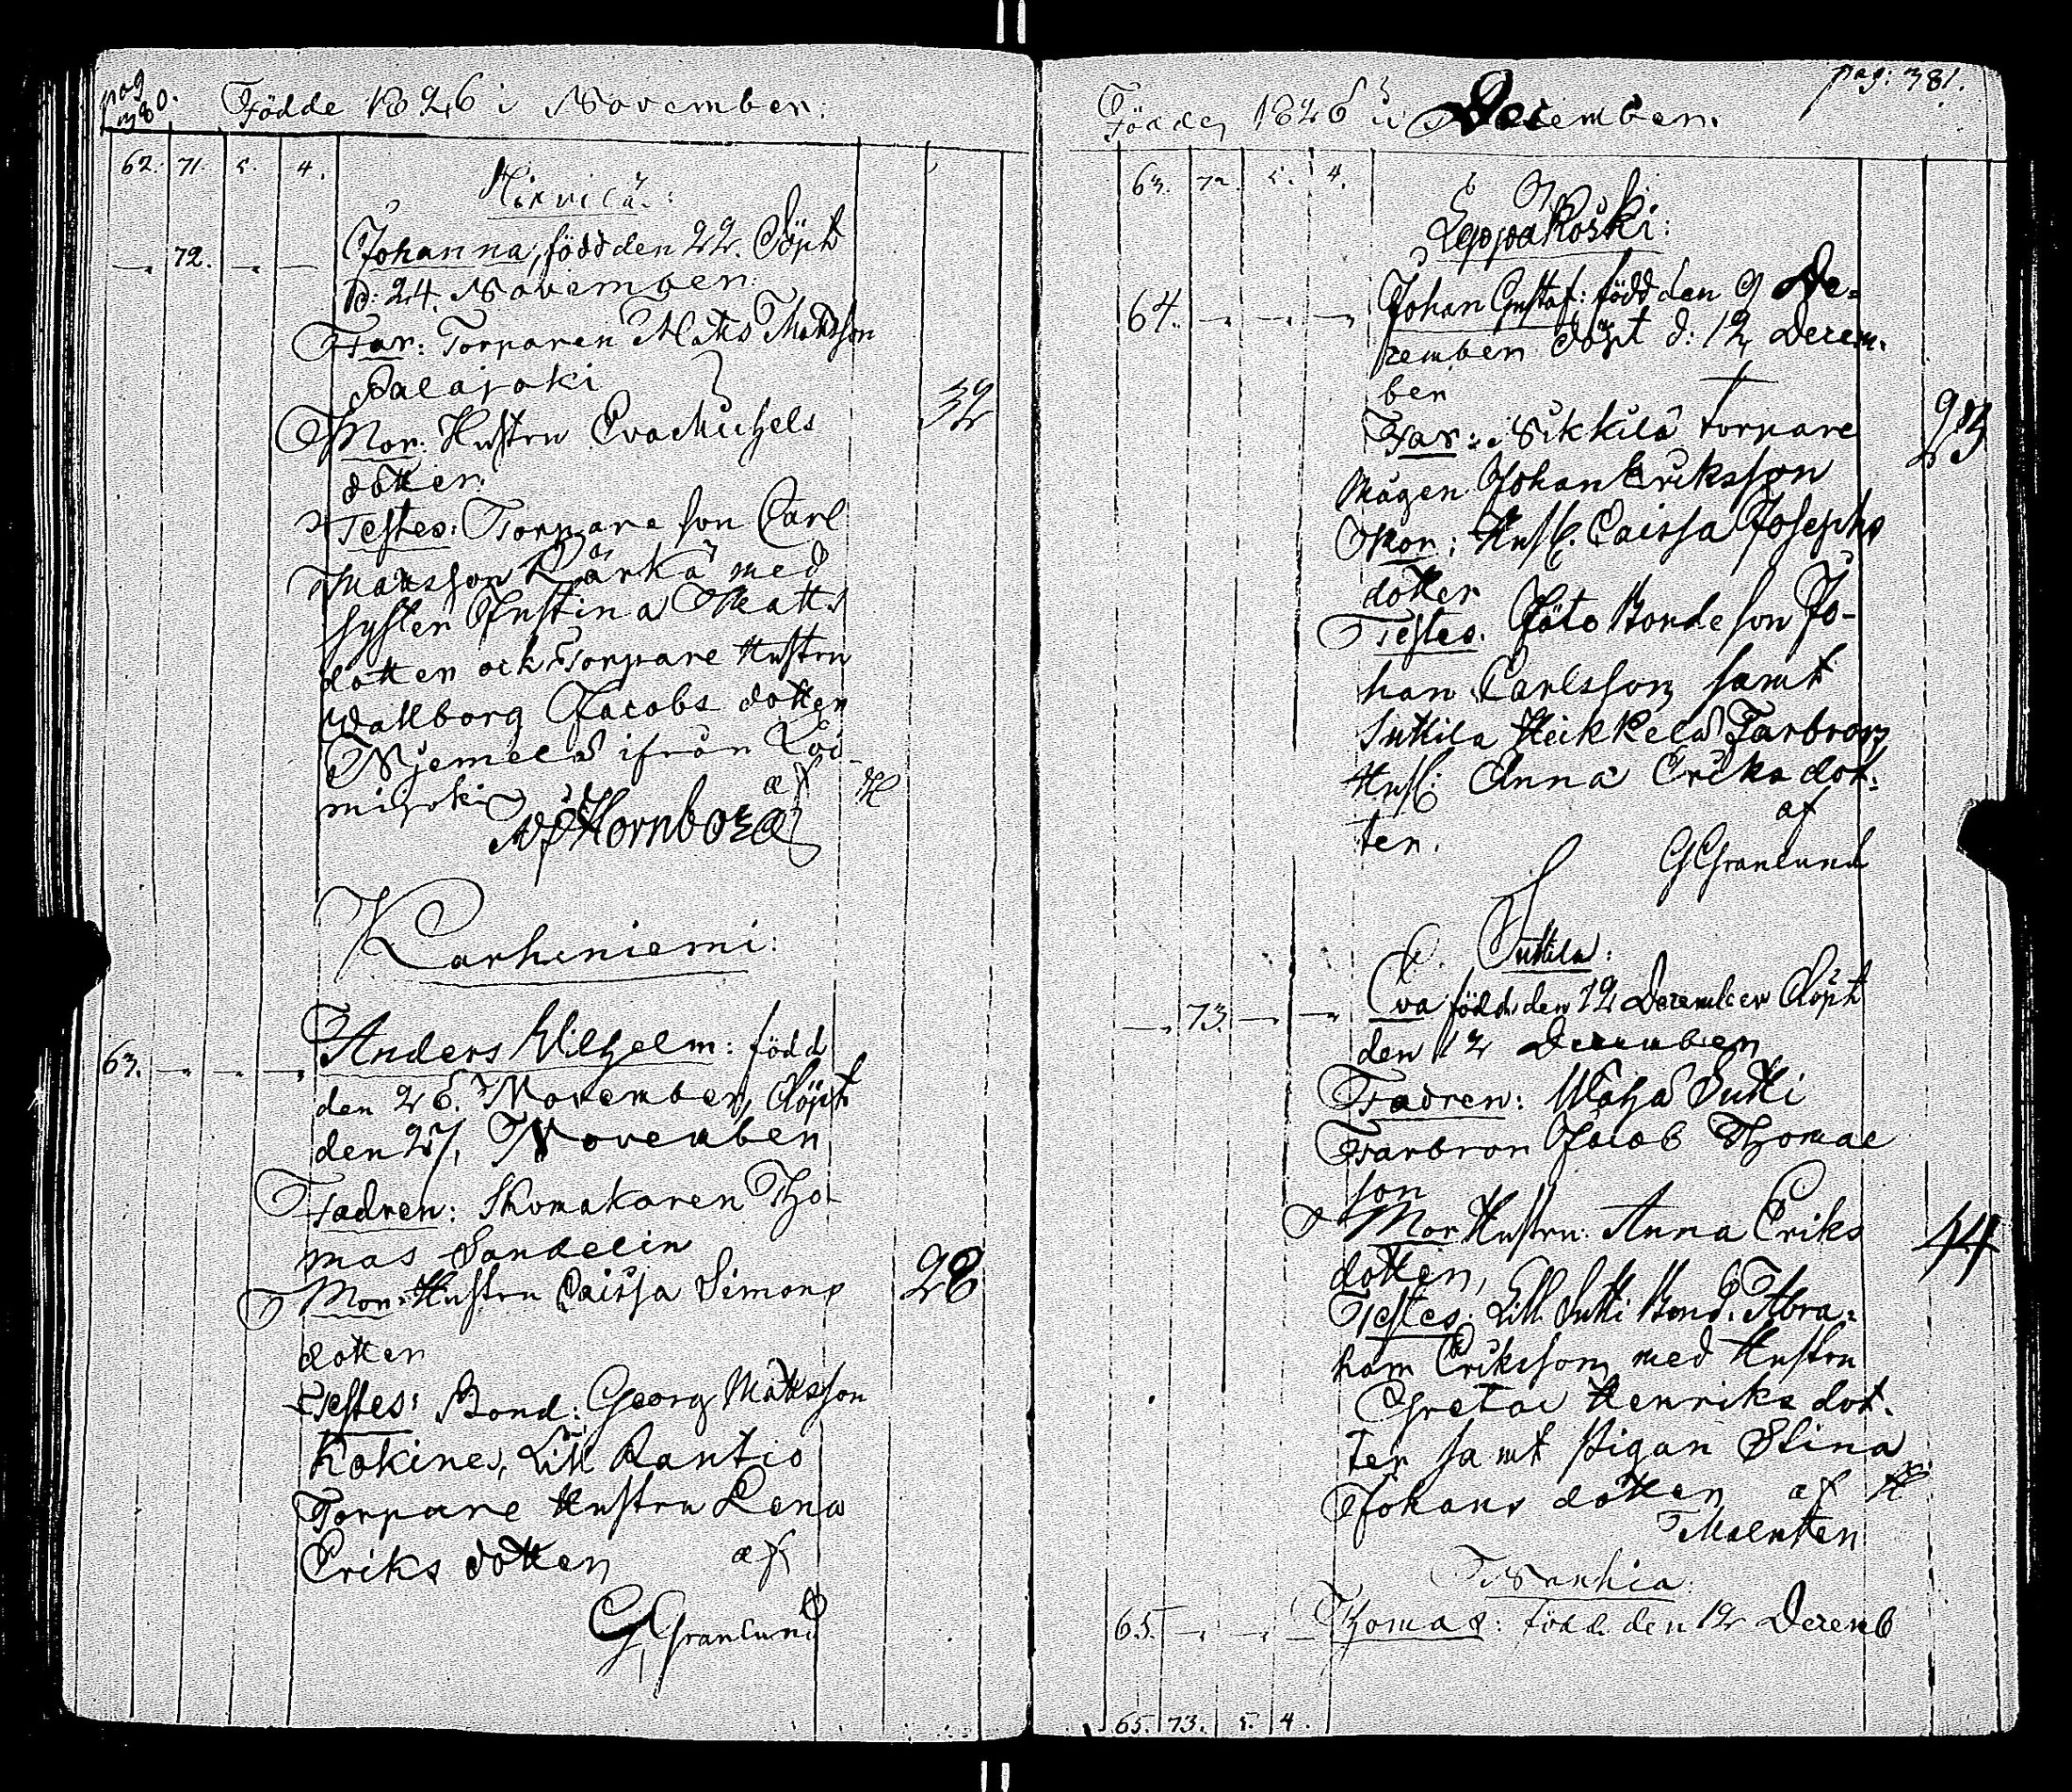 pag 380.
Födde 1826 i November:
62. 71. 5. 4.
Hirvilä:
72. Johanna, född den 22. Döpt
d: 24. November:
Far: Torparen Matts Mattsson
Palajoki
Mor: Hustru Eva Michels
dotter. 32
Testes: Torpare son Carl
Mattsson Kärkä med
syster Justina Matts
dotter och Torpare Hustru
Wallborg Jacobs dotter
Njemelä ifrån Loi
mijoki af
Hornborg
Karhiniemi:
63. Anders Wilhelm: född
den 26. November, Döpt
den 27, November
Fadren: Skomakaren Tho-
mas Sandelin
Mor: Hustru Caissa Simons 28
dotter
Testes: Bond: Georg Mattsson
Kokine, Lill Rantio
Torpare Hustru Lena
Eriks dotter af
G Granlund
pag: 381.
Födde 1826 i December.
63. 72. 5. 4.
Leppäkoski:
64. Johan Gustaf: född den 9 De-
cember döpt d: 12 Decem-
ber
Far: Nikkilä torpare 23
Mågen Johan Eriksson
Mor: Hust. Caissa Josephs
dotter
Testes. Bonde son Jo-
han Carlsson samt
Suttila Heikkelä Farbrors
Hust: Anna Eriks dot-
ter. af
G Granlund
Suttila:
73. Eva född den 12 December Döpt
den 12 December
Fadren: Wähä Sutti
Farbror Jacob Thomae
son
Mor Hustru: Anna Eriks 44
dotter,
Testes: Lill Sutti Bond: Abra-
ham Eriksson med Hustru
Greta Henriks dot-
ter samt Pigan Stina
Johans dotter af
Malmsten
Wanhia:
65. Thomas: född den 12 Decemb
65. 73. 5. 4.